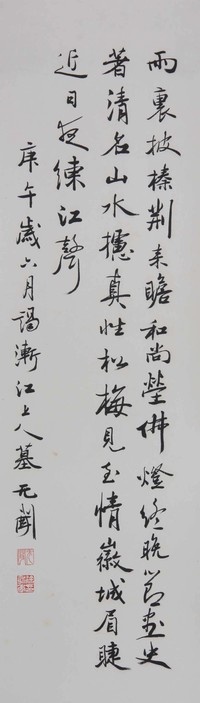 雨裏披榛荆来瞻和尚塋佛燈終晚節畫史
著清名山水攄真性松梅見至情徽城眉睫
近日夜練江聲
庚午歲六月謁漸江上人墓无聞